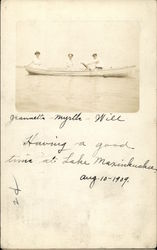 Jeannette - Myrtle - Will
Having a good
time at Lake Maxinkuckee
Aug-10-1909.